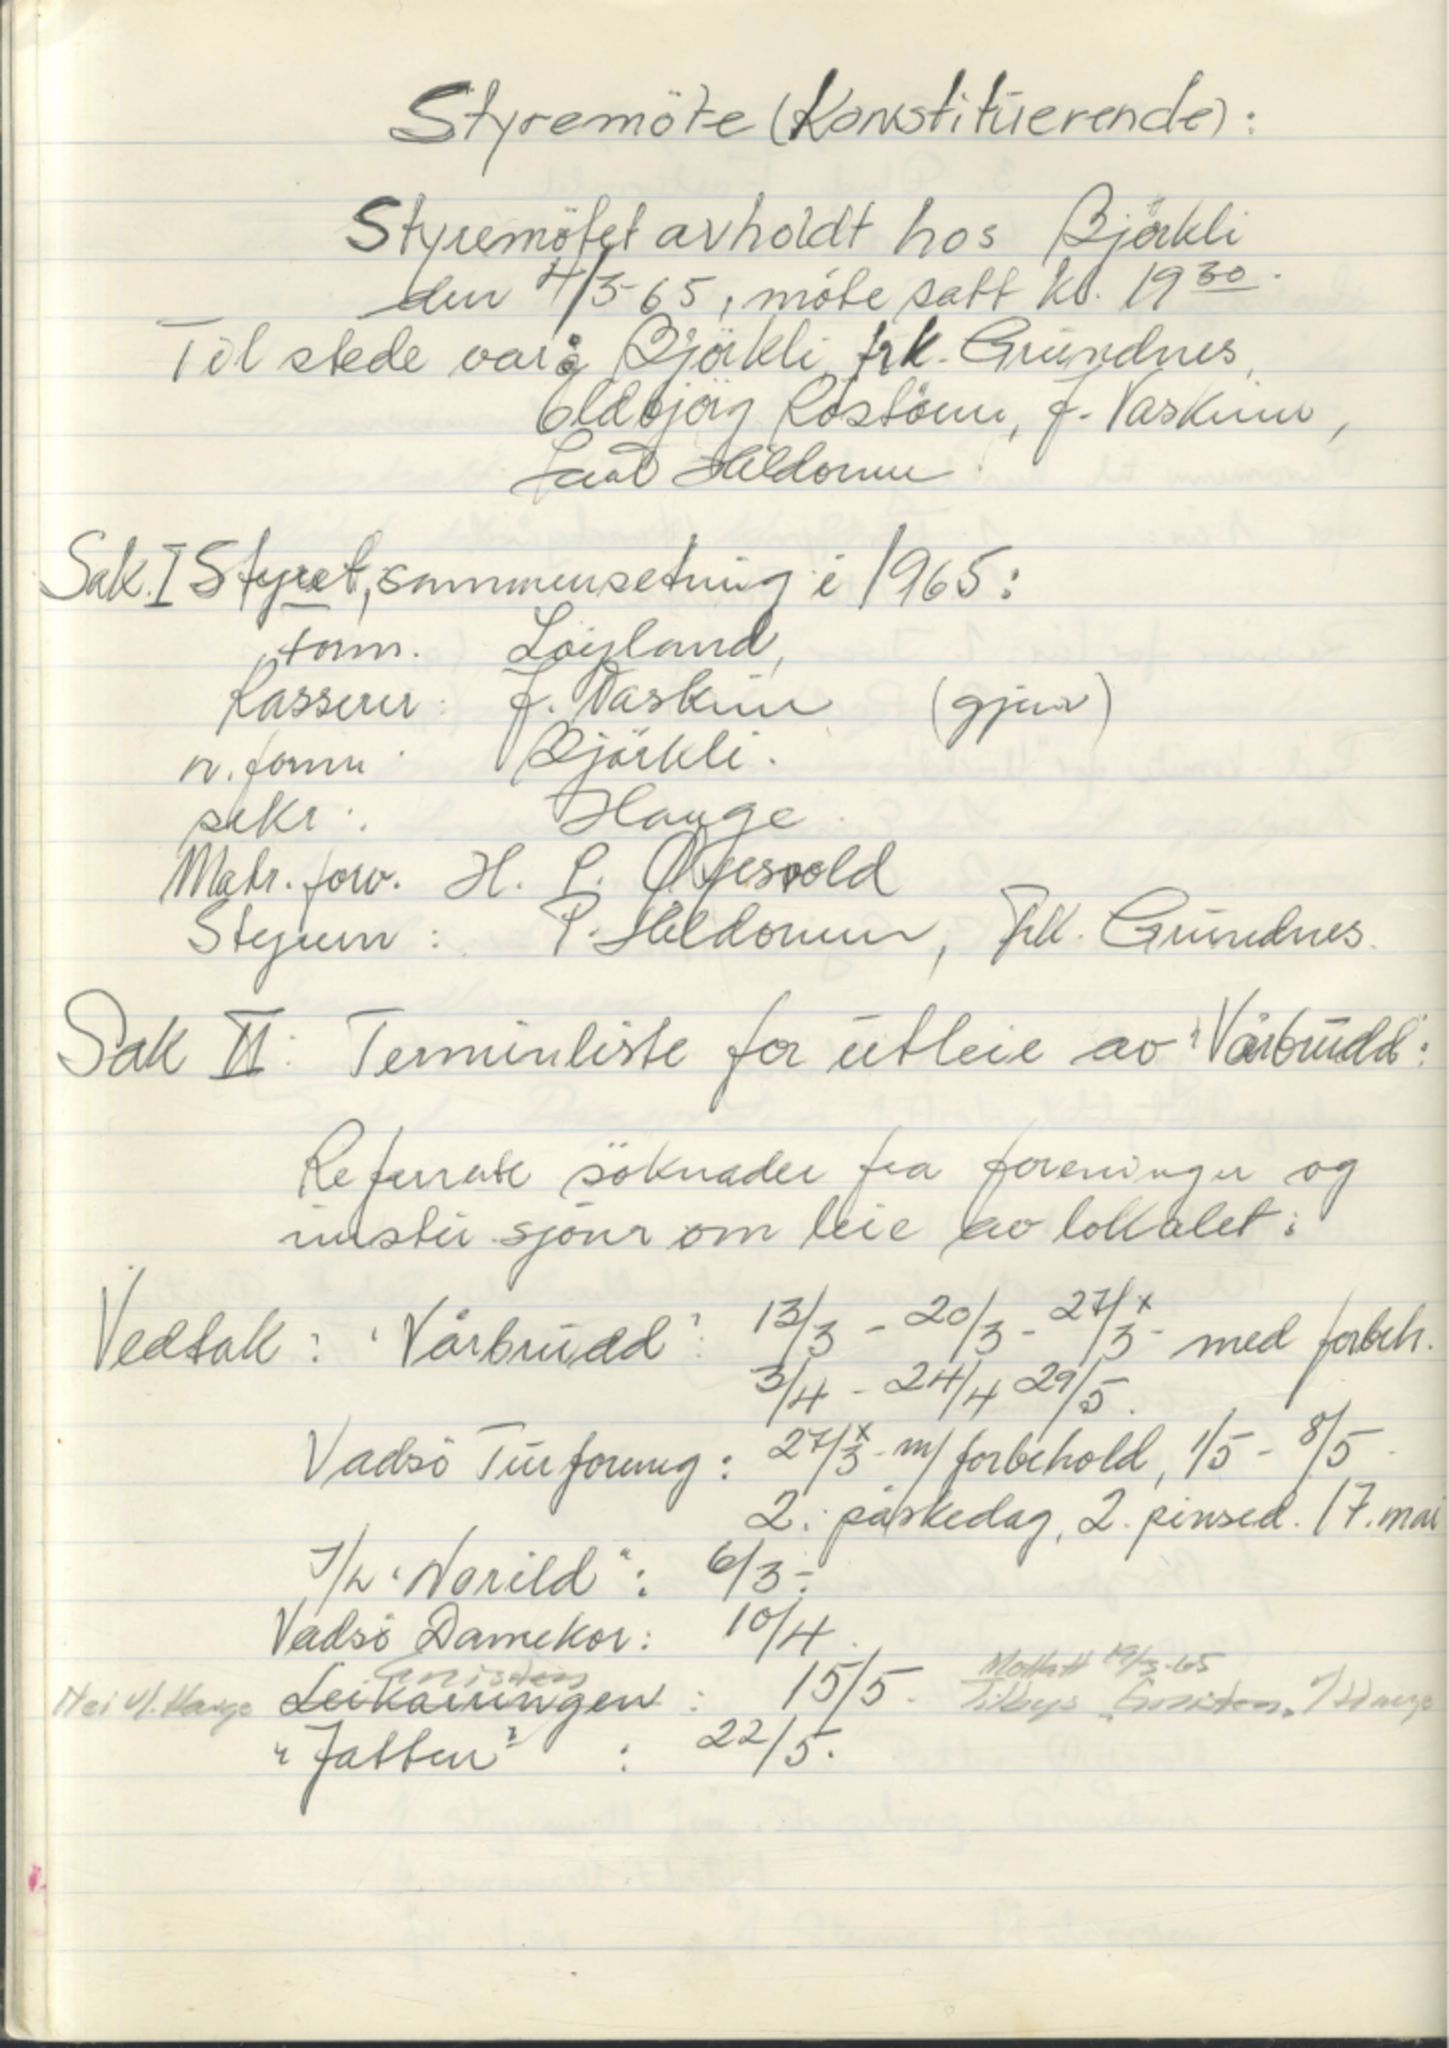 Styremöte (Konstituerende):
Styremötet avholdt hos Björkli
den 4/3-65, möte satt kl. 19 30.
Til stede var: Björkli, frk. Grundnes,
Oldbjörg Rostöen, J. Vaskinn,
Paul Hildonen.
Sak. I Styret, sammensetning i 1965:
form. Löyland,
Kasserer: J. Vaskinn (gjenv)
n. form: Björkli.
sekr.: Hauge.
Matr. forv. H. P. Gjesvold
Styrem: P. Hildonen, Frk. Grundnes.
Sak II: Terminliste for utleie av "Vårbrudd":
Refererte söknader fra foreninger og
institusjoner om leie av lokalet:
Vedtak: "Vårbrudd": 13/3 - 20/3 - 27/3 x - med forbeh.
3/4 - 24/4 29/5.
Vadsö Turforening: 27/3 x - m/ forbehold, 1/5 - 8/5.
2. påskedag, 2. pinsed. 17. mai
I/L "Norild": 6/3 -.
Vadsö Damekor: 10/4.
Gnisten Mottatt 19/3-65
Nei v/. Hauge Leikarringen: 15/5. Tilbys "Gnisten" v/ Hauge
"Jatten": 22/5.